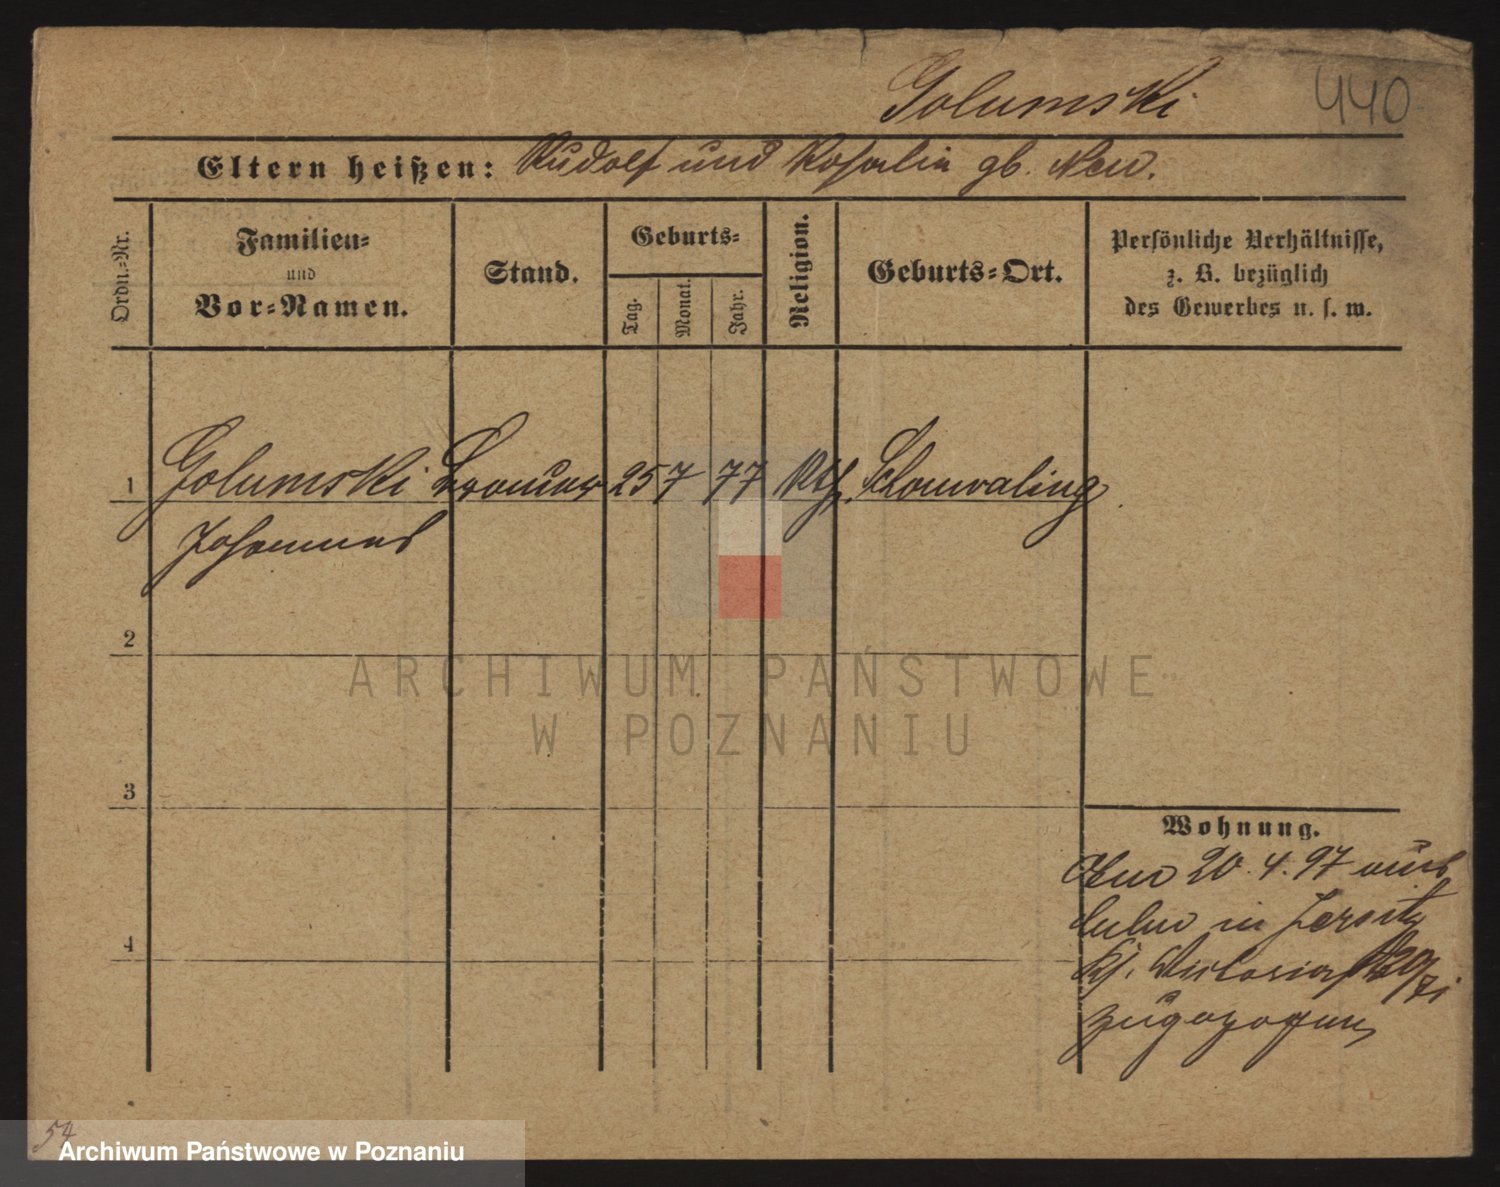 Golumski 440
Eltern heißen: Rudolf und Rosalia gb. Neu.
Ordn.-Nr.
Familien-
und
Vor-Namen.
Stand.
Geburts-
Tag.
Monat.
Jahr.
Religion.
Geburts-Ort.
Persönliche Verhältnisse,
z. B. bezüglich
des Gewerbes u. s. w.
1 Golumski Brauer 25 7 77 Kth.
Johannes
2
3
4
Wohnung.
20. 4. 97 aus
in Jersitz
zugezogen
54
ARCHIWUM PAŃSTWOWE
W POZNANIU
Archiwum Państwowe w Poznaniu